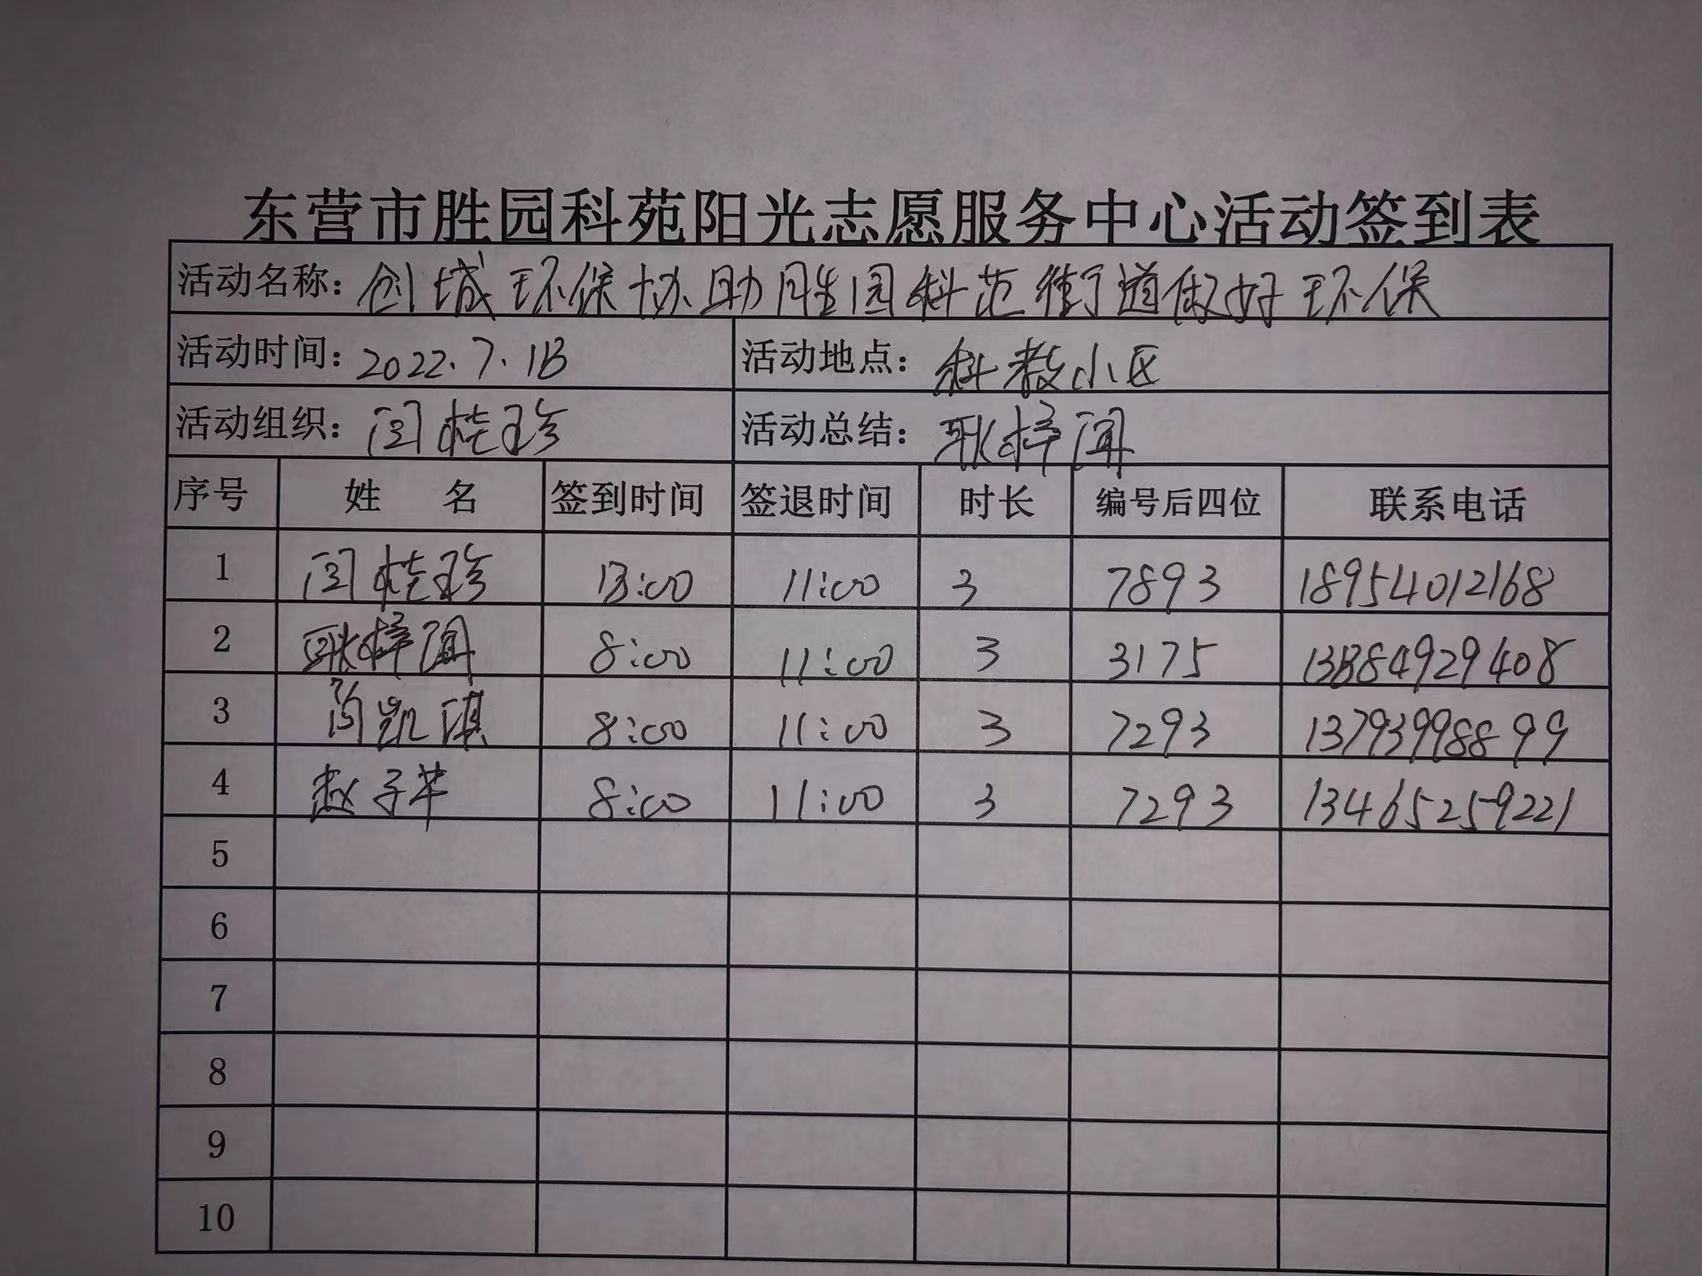 东营市胜园科苑阳光志愿服务中心活动签到表
活动名称：创城环保协助胜园科苑街道做好环保
活动时间：2022.7.18 活动地点：科教小区
活动组织：闫桂珍 活动总结：耿梓闻
序号 姓 名 签到时间 签退时间 时长 编号后四位 联系电话
1 闫桂珍 :00 11:00 3 7893 18954012168
2 耿梓闻 8:00 11:00 3 3175
3 凯琪 8:00 11:00 3 7293 13793998899
4 赵子 8:00 11:00 3 7293 13465259221
5
6
7
8
9
10